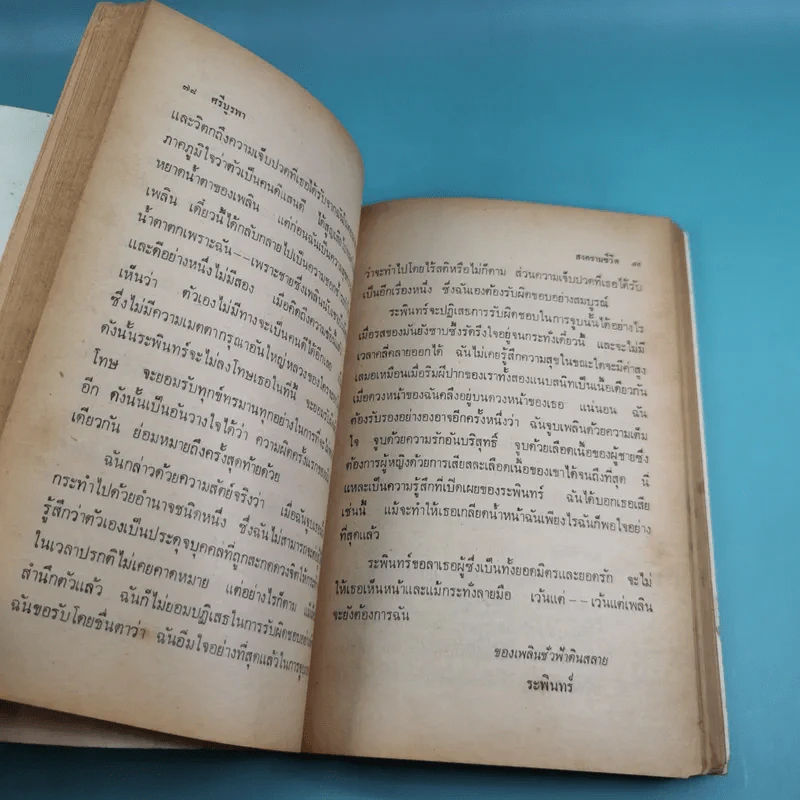 ๗๘ ศรีบูรพา
และวิตกถึงความเจ็บปวดที่เธอได้รับจากฉัน
ภาคภูมิใจว่าตัวเป็นคนดีแสนดี ได้สูญเสีย
หยาดน้ำตาของเพลิน แต่ก่อนฉันเป็นความ
เพลิน เดี๋ยวนี้ได้กลับกลายไปเป็นความ
น้ำตาตกเพราะฉัน--เพราะชายซึ่งเพลิน
และดีอย่างหนึ่งไม่มีสอง เมื่อคิดถึงความ
เห็นว่า ตัวเองไม่มีทางจะเป็นคนดีได้อีกเลย
ซึ่งไม่มีความเมตตากรุณาอันใหญ่หลวงของใคร
ดังนั้นระพินทร์จะไม่ลงโทษเธอในที่นี้ จะยอมรับ
โทษ จะยอมรับทุกข์ทรมานทุกอย่างในการที่จะ
อีก ดังนั้นเป็นอันวางใจได้ว่า ความผิดครั้งแรก
เดียวกัน ย่อมหมายถึงครั้งสุดท้ายด้วย
ฉันกล่าวด้วยความสัตย์จริงว่า เมื่อฉัน
กระทำไปด้วยอำนาจชนิดหนึ่ง ซึ่งฉันไม่สามารถจะ
รู้สึกว่าตัวเองเป็นประดุจบุคคลที่ถูกสะกดดวงจิตให้
ในเวลาปรกติไม่เคยคาดหมาย แต่อย่างไรก็ตาม
สำนึกตัวแล้ว ฉันก็ไม่ยอมปฏิเสธในการรับผิดชอบ
ฉันขอรับโดยชื่นตาว่า ฉันอิ่มใจอย่างที่สุดแล้วในการ
สงครามชีวิต ๗๙
ว่าจะทำไปโดยไร้สติหรือไม่ก็ตาม ส่วนความเจ็บปวดที่เธอได้รับ
เป็นอีกเรื่องหนึ่ง ซึ่งฉันเองต้องรับผิดชอบอย่างสมบูรณ์
ระพินทร์จะปฏิเสธการรับผิดชอบในการจูบนั้นได้อย่างไร
เมื่อรสของมันยังซาบซึ้งรัดรึงใจอยู่จนกระทั่งเดี๋ยวนี้ และจะไม่มี
เวลาคลี่คลายออกได้ ฉันไม่เคยรู้สึกความสุขในขณะใดจะมีค่าสูง
เสมอเหมือนเมื่อริมฝีปากของเราทั้งสองแนบสนิทเป็นเนื้อเดียวกัน
เมื่อดวงหน้าของฉันคลึงอยู่บนดวงหน้าของเธอ แน่นอน ฉัน
ต้องรับรองอย่างองอาจอีกครั้งหนึ่งว่า ฉันจูบเพลินด้วยความเต็ม
ใจ จูบด้วยความรักอันบริสุทธิ์ จูบด้วยเลือดเนื้อของผู้ชายซึ่ง
ต้องการผู้หญิงด้วยการเสียสละเลือดเนื้อของเขาได้จนถึงที่สุด นี่
แหละเป็นความรู้สึกที่เปิดเผยของระพินทร์ ฉันได้บอกเธอเสีย
เช่นนี้ แม้จะทำให้เธอเกลียดน้ำหน้าฉันเพียงไรฉันก็พอใจอย่าง
ที่สุดแล้ว
ระพินทร์ขอลาเธอผู้ซึ่งเป็นทั้งยอดมิตรและยอดรัก จะไม่
ให้เธอเห็นหน้าและแม้กระทั่งลายมือ เว้นแต่--เว้นแต่เพลิน
จะยังต้องการฉัน
ของเพลินชั่วฟ้าดินสลาย
ระพินทร์